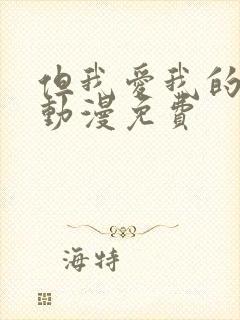 但我愛我的
動漫免費
海特